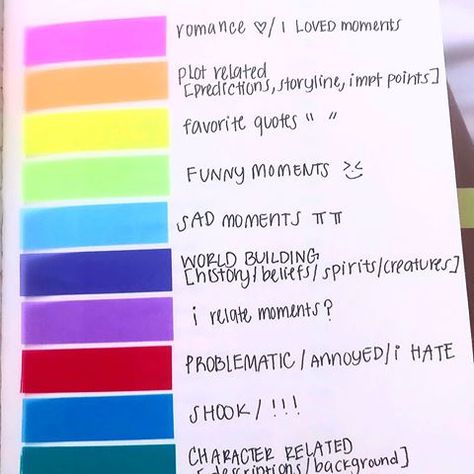 romance ♡/ I LOVED moments
plot related
[predictions, storyline, impt points]
favorite quotes " "
FUNNY MOMENTS >_<
SAD MOMENTS ㅠㅠ
WORLD BUILDING
[history/beliefs/spirits/creatures]
i relate moments?
PROBLEMATIC/ANNOYED/i HATE
SHOOK/!!!
CHARACTER RELATED
[descriptions/background]